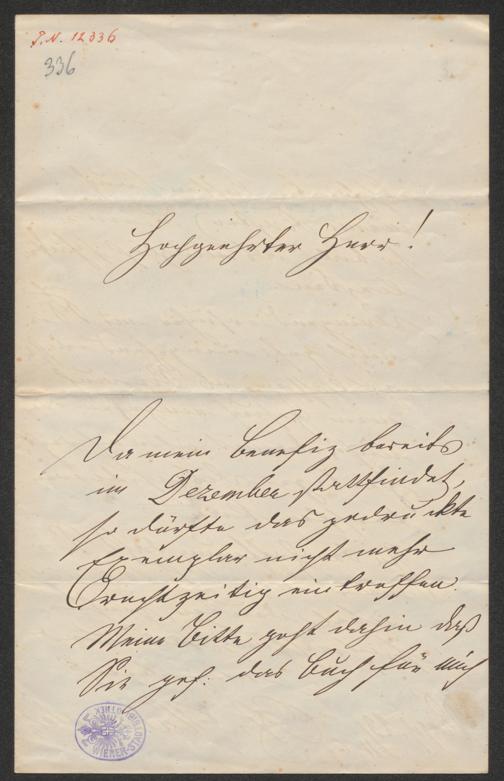 J.N. 12336
336
Hochgeehrter Herr!
Da mein Benefiz bereits
im Dezember stattfindet,
so dürfte das gedruckte
Exemplar nicht mehr
rechtzeitig eintreffen.
Meine Bitte geht dahin daß
Sie gef: das Buch für mich
WIENER-STADTBIBLIOTHEK